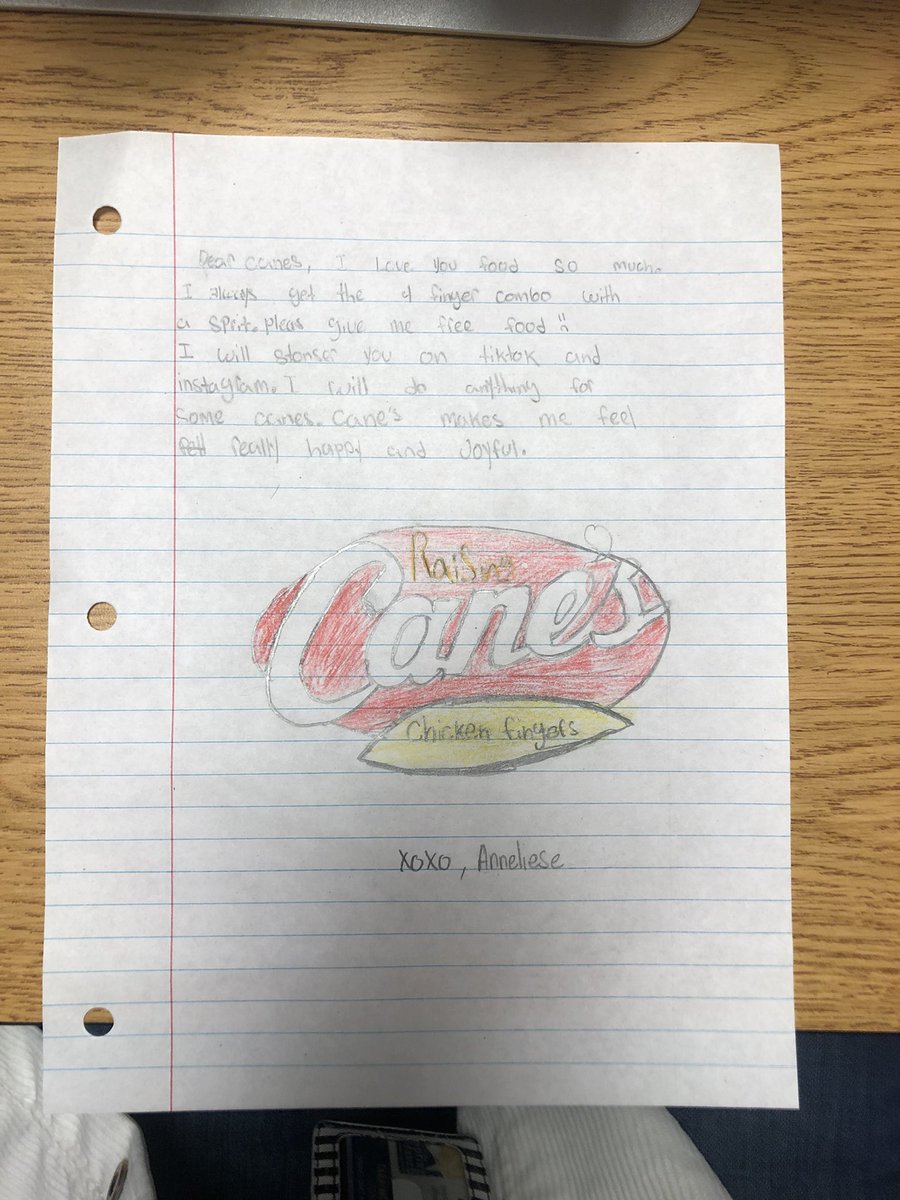 Dear canes, I Love you food so much.
I always get the 4 finger combo with
a sprit. Pleas give me free food
I will stonser you on tiktok and
instagram. I will do anything for
some canes. Cane's makes me feel
really happy and Joyful.
Raising
Cane's
Chicken fingers
XOXO, Anneliese